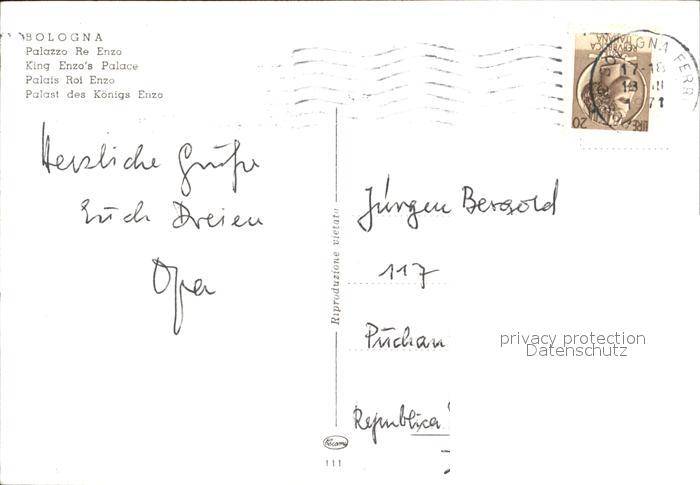 BOLOGNA
Palazzo Re Enzo
King Enzo's Palace
Palais Roi Enzo
Palast des Königs Enzo
Herzliche Grüße
Euch Dreien
Opa
Riproduzione vietata
111
REPVBBLICA
ITALIANA
LIRE 20
GNA FERR
17-18
71
Jürgen Bergold
117
Puchau
Republica
privacy protection
Datenschutz